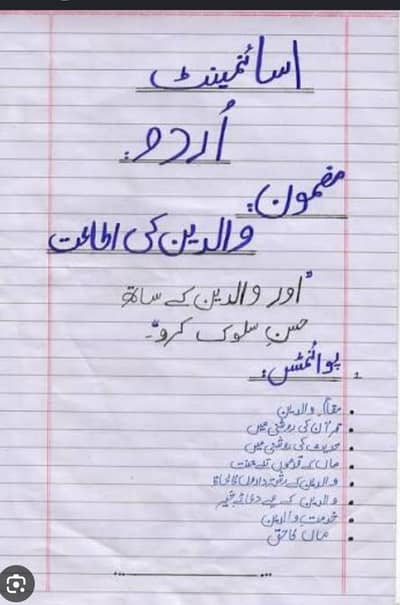 اسائنمینٹ
اُردو:
مضمون:
والدین کی اطاعت
"اور والدین کے ساتھ
حسنِ سلوک کرو"۔
پوائنٹس:
مقامِ والدین
قرآن کی روشنی میں
حدیث کی روشنی میں
ماں کے قدموں تلے جنت
والدین کے رشتہ داروں کا لحاظ
والدین کے لیے دعائے خیر
خدمت والدین
ماں کا حق